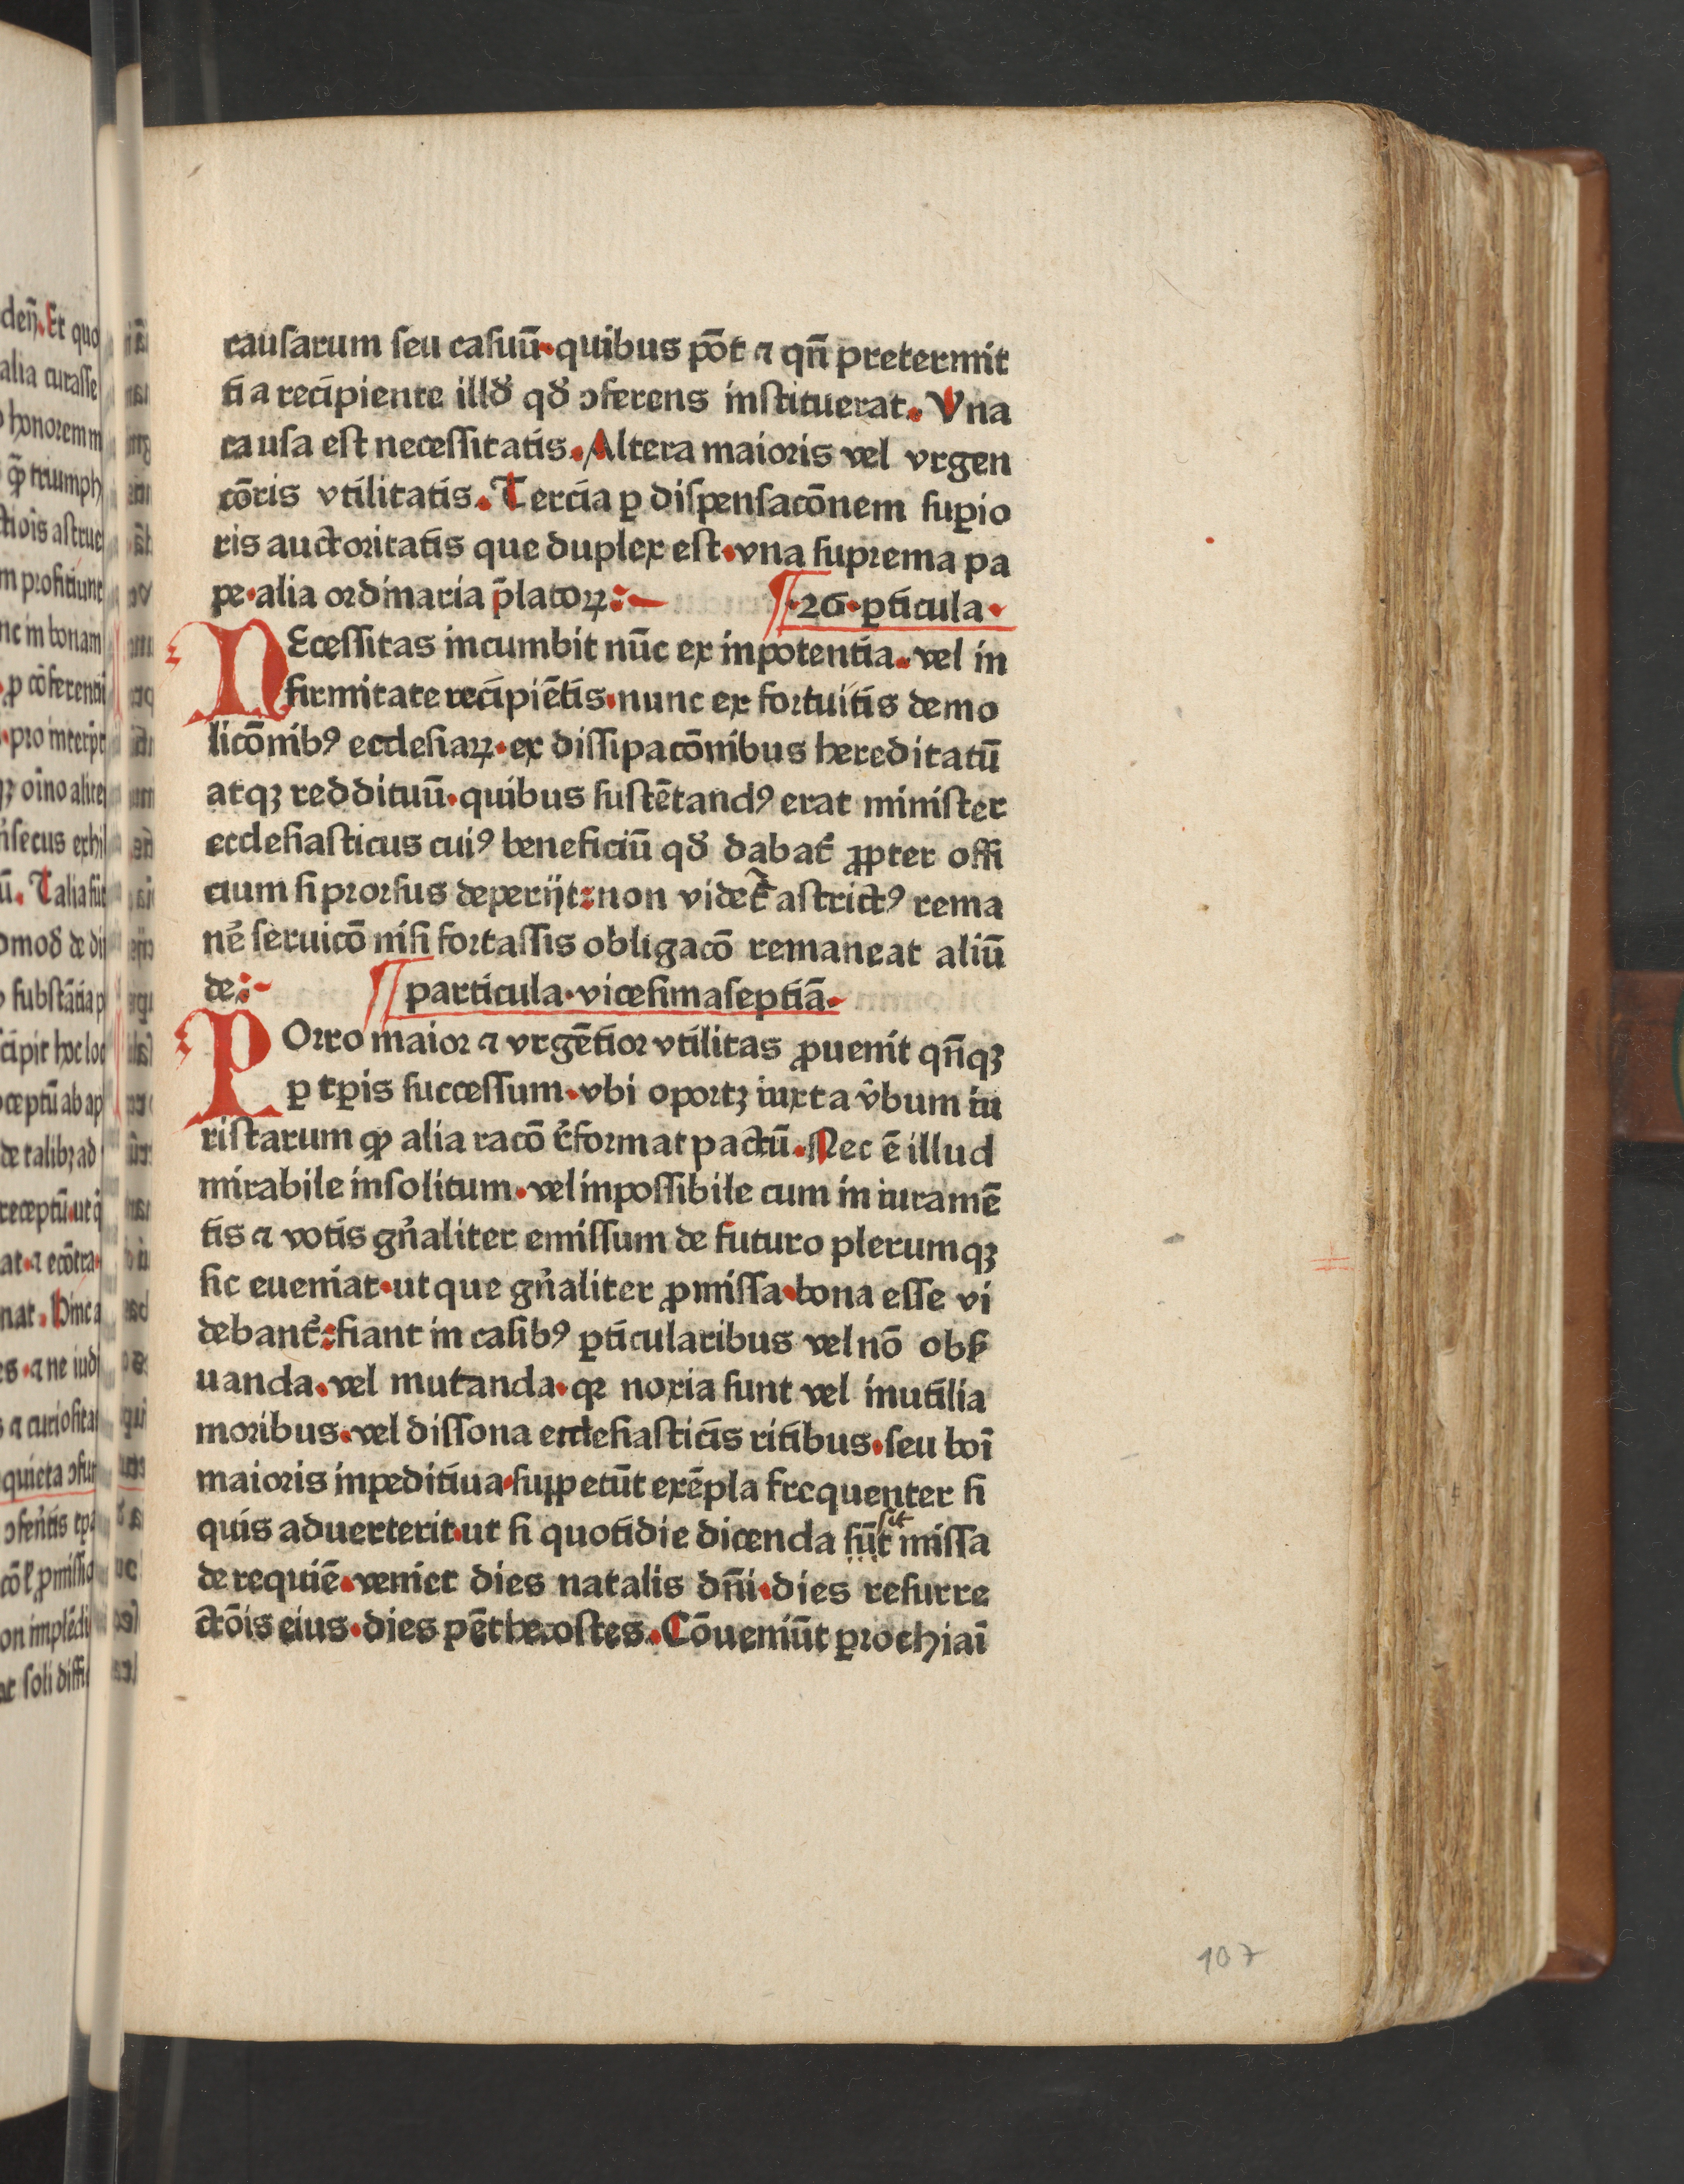 causarum seu casuū·quibus pōt ⁊ qn̄ pretermit
ti a recipiente illd̄ qd̄ ꝯferens instituerat. Vna
causa est necessitatis. Altera maioris vel vrgen
cōris vtilitatis. Tercia ꝑ dispensacōnem suꝑio
ris auctoritatis que duplex est·vna suprema pa
pe·alia ordinaria p̄latoꝝ:
·26·ꝑticula·
NEcessitas incumbit nūc ex inpotentia·vel in
firmitate recipiētis·nunc ex fortuitis demo
licōnibꝰ ecclesiaꝝ·ex dissipacōnibus hereditatū
atqꝫ reddituū·quibus sustētandꝰ erat minister
ecclesiasticus cuiꝰ beneficiū qd̄ dabat̄ ꝓpter offi
cium si prorsus deperijt:non videt̄ astrictꝰ rema
ne᷑ seruicō nisi fortassis obligacō remaneat aliū
de:
particula·vicesimaseptiā·
POrro maior ⁊ vrgētior vtilitas ꝓuenit qn̄qꝫ
ꝑ tꝑis successum·vbi oportꝫ iuxta v̄bum iu
ristarum ꝙ alia racō t᷑format pactū. Nec ē illud
mirabile insolitum·vel inpossibile cum in iuramē
tis ⁊ votis gn̄aliter emissum de futuro plerumqꝫ
sic eueniat·ut que gn̄aliter ꝓmissa·bona esse vi
debant᷑:fiant in casibꝰ ꝑticularibus vel nō obẜ
uanda·vel mutanda·qꝛ noxia sunt vel inutilia
moribus·vel dissona ecclesiasticis ritibus·seu boī
maioris inpeditiua·suꝑpetūt exēpla frequenter si
quis aduerterit·ut si quotidie dicenda sūt sit missa
de requiē·veniet dies natalis dn̄i·dies resurre
ctōis eius·dies pēthecostes. Cōueniūt ꝑrochiaī
107